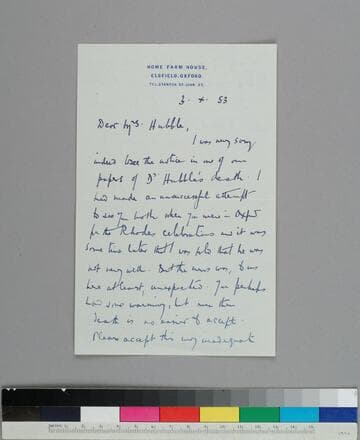 HOME FARM HOUSE,
ELSFIELD, OXFORD.
TEL. STANTON ST. JOHN 23.
3. 4. 53
Dear Mrs. Hubble,
I was very sorry
indeed to see the notice in one of our
papers of Dr Hubble's death. I
had made an unsuccessful attempt
to see you both when you were in Oxford
for the Rhodes celebrations and it was
some time later that I was told that he was
not very well. But the news was, to us
here at least, unexpected. You perhaps
had some warning, but even then
death is no easier to accept.
Please accept this very inadequate